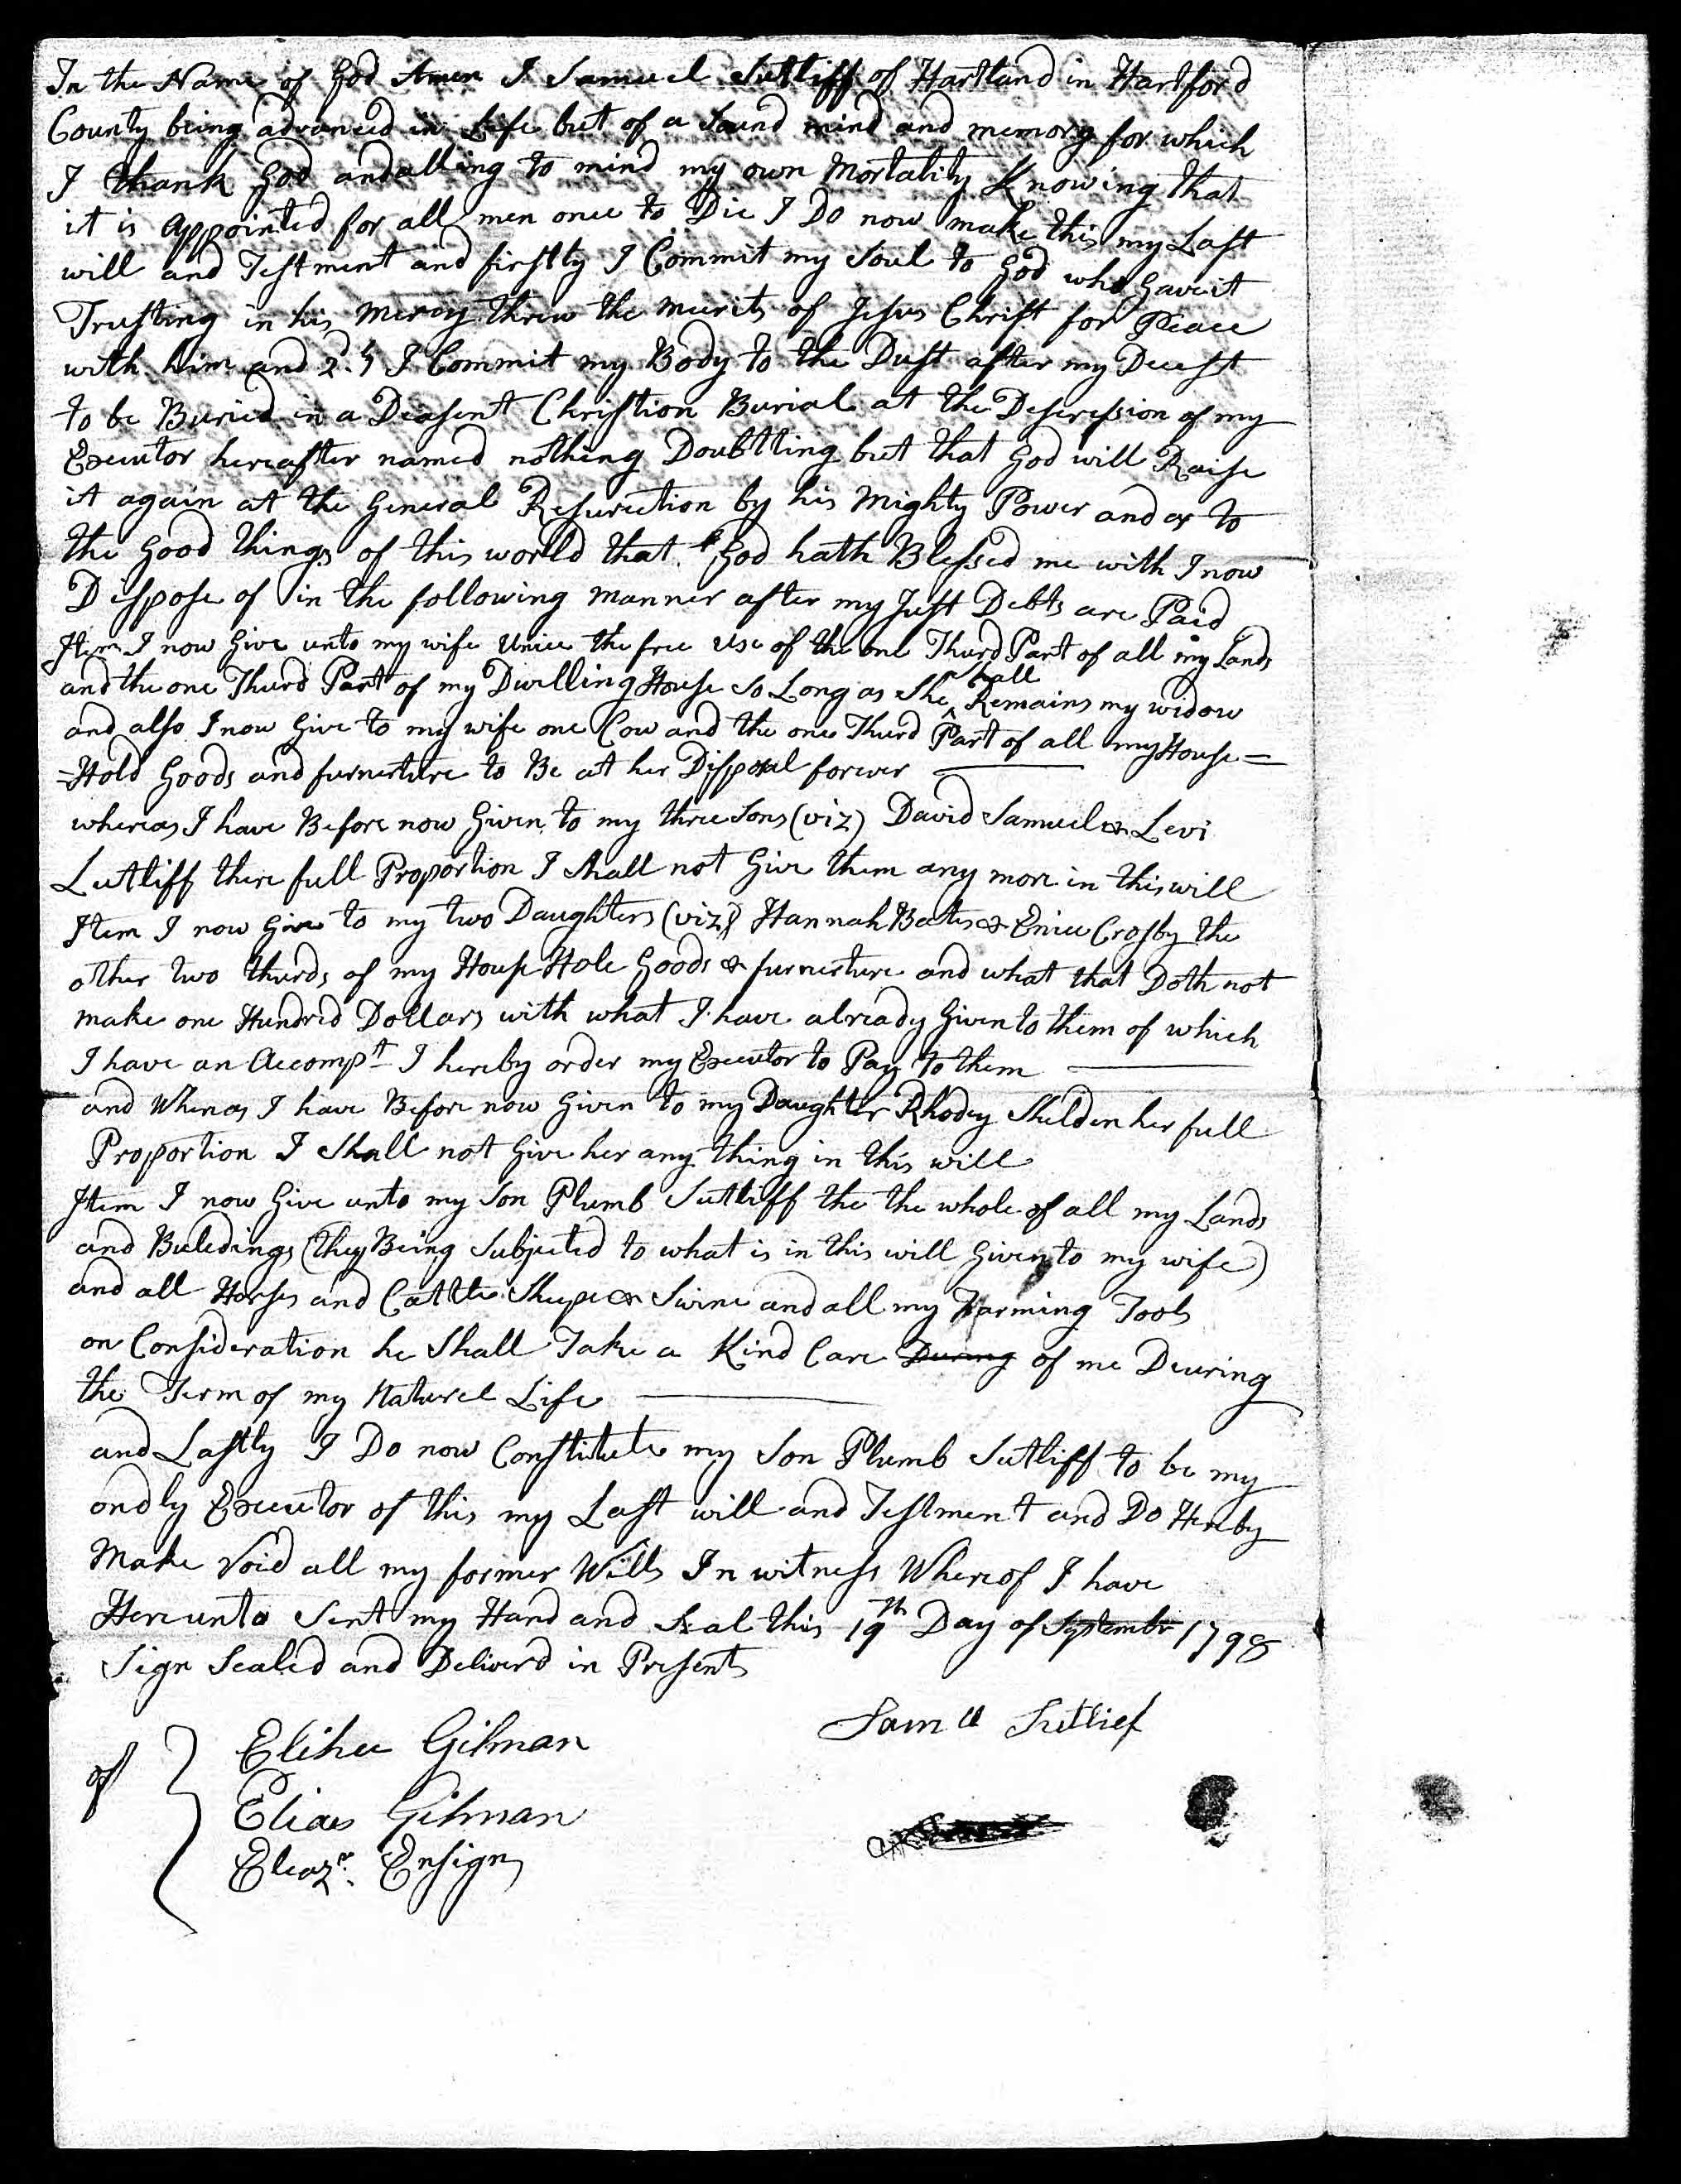 In the Name of God Amen I Samuel Sutliff of Hartland in Hartford
County being advanced in Life but of a Sound mind and memory for which
I thank God andalling to mind my own Mortality Knowing that
it is appointed for all men once to Die I Do now make this my Last
will and Testment and firstly I Commit my Soul to God who Gave it
Trusting in his mercy threw the meerits of Jesus Christ for Peace
with him and 2ly I Commit my Body to the Dust after my Decest
to be Buried in a Deasent Christion Burial at the Descression of my
Executor hereafter named nothing Doubtting but that God will Raise
it again at the General Resurection by his Mighty Power and as to
the Good things of this world that God hath Blessed me with I now
Dispose of in the following manner after my Just Debts are Paid
Item I now Give unto my wife Unice the free Use of the one Thurd Part of all my Lands
and the one Thurd Part of my Dwelling House So Long as She Shall Remains my widow
and also I now Give to my wife one Cow and the one Thurd Part of all my House=
=Hold Goods and furnerture to Be at her Disposal forever
whereas I have Before now Given to my three Sons (viz) David Samuel & Levi
Sutliff there full Proportion I Shall not Give them any more in this will
Item I now Give to my two Daughters (viz) Hannah Bates & Enice Crosby the
other two thurds of my House Hole Goods & furnerture and what that Doth not
make one Hundred Dollars with what I have already Given to them of which
I have an Accompt I hereby order my Executor to Pay to them
and Whereas I have Before now Given to my Daughter Rhodey Shelden her full
Proportion I Shall not Give her any thing in this will
Item I now Give unto my Son Plumb Sutliff the the whole of all my Lands
and Buledings (they Being Subjected to what is in this will Given to my wife)
and all Horses and Cattle Sheepe & Swine and all my Farming Tools
on Consideration he Shall Take a Kind Care During of me Deuring
the Term of my Naturel Life
and Lastly I Do now Constitute my Son Plumb Sutliff to be my
ondly Executor of this my Last will and Testment and Do Hereby
Make Void all my former Wills In witness Whereof I have
Hereunto Sent my Hand and Seal this 19th Day of Septembr 1798
Sign Sealed and Deliverd in Presents
Samll Sutlief
of
Elihu Gilman
Elias Gilman
Eleazr. Ensign